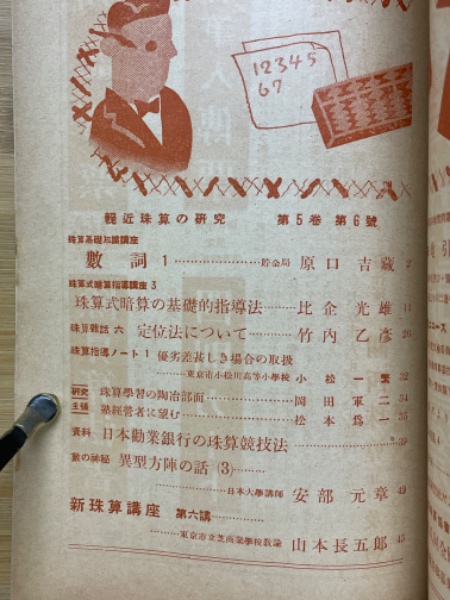 12345
67
輓近珠算の研究 第5巻 第6號
珠算基礎知識講座
數詞 1……貯金局 原口吉藏 2
珠算式暗算指導講座 3
珠算式暗算の基礎的指導法……比企光雄 11
珠算雜話 六 定位法について……竹内乙彦 26
珠算指導ノート 1 優劣差甚しき場合の取扱
……東京市小松川高等小學校 小松一繁 32
研究 珠算學習の陶冶部面……岡田軍二 34
主張 塾經營者に望む……松本爲一 35
資料 日本勸業銀行の珠算競技法……39
數の神秘 異型方陣の話 (3)……
……日本大學講師 安部元章 43
新珠算講座 第六講……
……東京市立芝商業學校教諭 山本長五郎 45